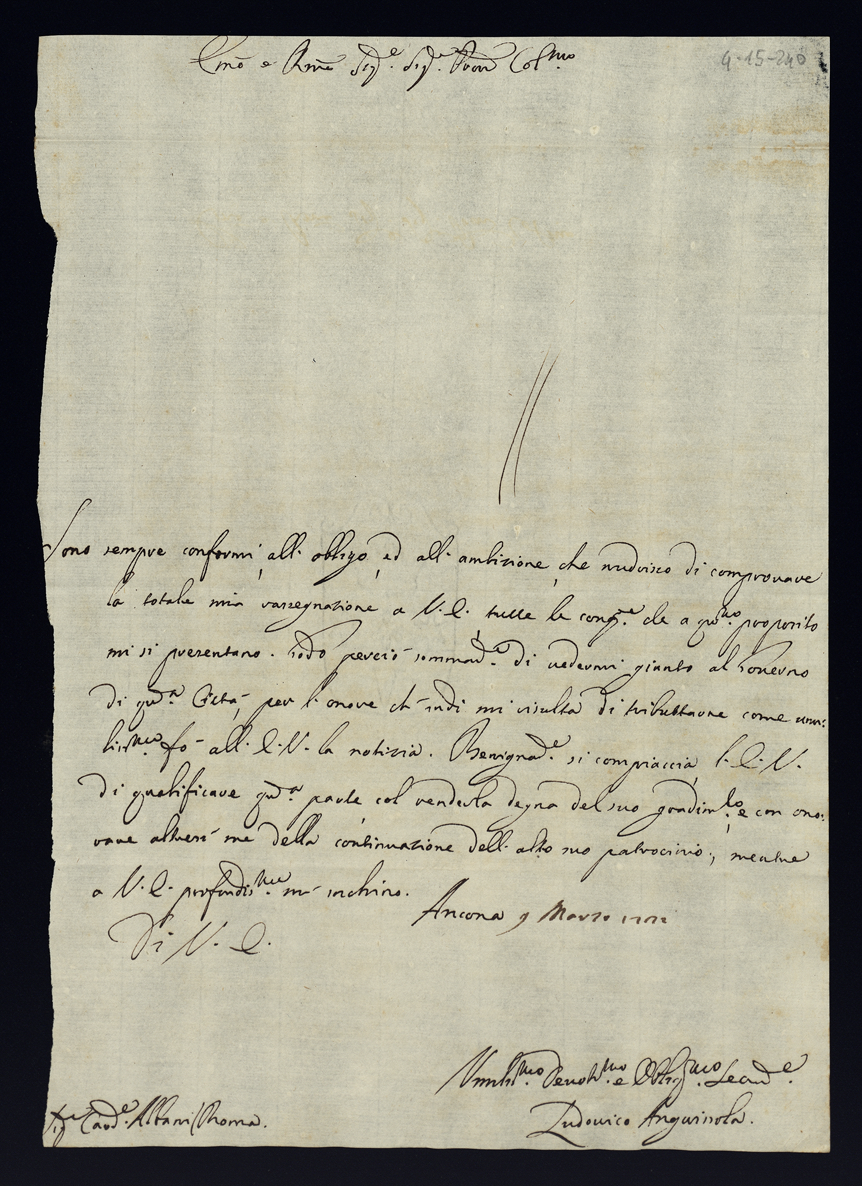 Em̃o e Rm̃e Sig.e Sig.e Pron Col.mo
4-15-240
Sono sempre conformi all'obligo, ed all'ambizione, che nudrisco di comprovare
la totale mia rassegnazione a V. E. tutte le cong.re che a q.sto proposito
mi si presentano. Godo perciò sommam.e di vedermi giunto al Governo
di q.sta Città, per l'onore ch'indi mi risulta di tributtarne come umi:
liss.mte fò all'E. V. la notizia. Benignam.e si compiaccia l'E. V.
di qualificare q.sta parte col renderla degna del suo gradim.to, e con ono:
rare altresì me della continuazione dell'alto suo patrocinio; mentre
a V. E. profondis.mte m'inchino.
Ancona 9 Marzo
Di V. E.
Umiliss.mo Devotiss.mo e Oblig.mo Ser.e
Ludovico Anguissola.
Sig.re Card.e Albani / Roma.